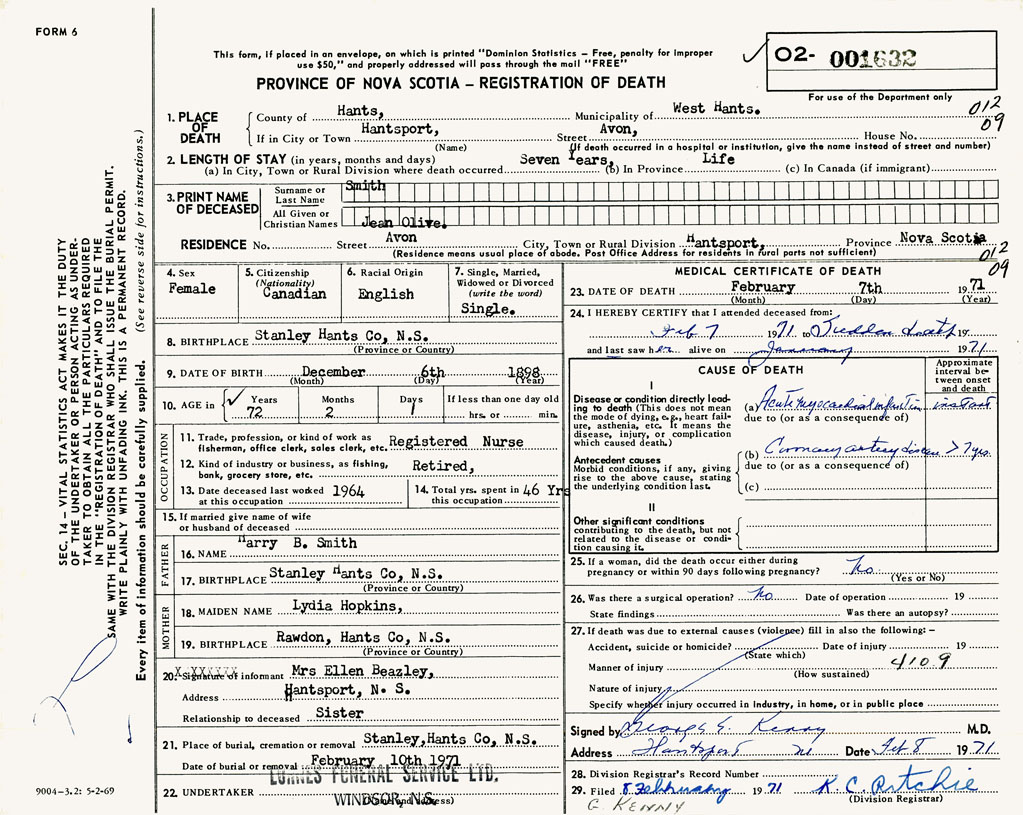 FORM 6
This form, if placed in an envelope, on which is printed "Dominion Statistics – Free, penalty for improper
use $50," and properly addressed will pass through the mail "FREE"
PROVINCE OF NOVA SCOTIA – REGISTRATION OF DEATH
O2- 001632
For use of the Department only
012
09
1. PLACE OF DEATH
County of Hants, Municipality of West Hants.
If in City or Town Hantsport, Street Avon, House No.
(Name) (If death occurred in a hospital or institution, give the name instead of street and number)
2. LENGTH OF STAY (in years, months and days) Seven Years, Life
(a) In City, Town or Rural Division where death occurred (b) In Province (c) In Canada (if immigrant)
3. PRINT NAME OF DECEASED
Surname or Last Name Smith
All Given or Christian Names Jean Olive.
RESIDENCE No. Street Avon City, Town or Rural Division Hantsport, Province Nova Scotia
(Residence means usual place of abode. Post Office Address for residents in rural parts not sufficient)
012
09
4. Sex
Female
5. Citizenship
(Nationality)
Canadian
6. Racial Origin
English
7. Single, Married,
Widowed or Divorced
(write the word)
Single.
8. BIRTHPLACE Stanley Hants Co, N.S.
(Province or Country)
9. DATE OF BIRTH December 6th 1898
(Month) (Day) (Year)
10. AGE in Years 72 Months 2 Days 1 If less than one day old
hrs. or min.
OCCUPATION
11. Trade, profession, or kind of work as
fisherman, office clerk, sales clerk, etc. Registered Nurse
12. Kind of industry or business, as fishing,
bank, grocery store, etc. Retired,
13. Date deceased last worked 1964
at this occupation
14. Total yrs. spent in 46 Yrs
this occupation
15. If married give name of wife
or husband of deceased
FATHER
16. NAME Harry B. Smith
17. BIRTHPLACE Stanley Hants Co, N.S.
(Province or Country)
MOTHER
18. MAIDEN NAME Lydia Hopkins,
19. BIRTHPLACE Rawdon, Hants Co, N.S.
(Province or Country)
X XXXXXXX
20. Signature of informant Mrs Ellen Beazley,
Address Hantsport, N. S.
Relationship to deceased Sister
21. Place of burial, cremation or removal Stanley, Hants Co, N.S.
Date of burial or removal February 10th 1971
22. UNDERTAKER LORNES FUNERAL SERVICE LTD.
WINDSOR, N.S.
(Name and Address)
MEDICAL CERTIFICATE OF DEATH
23. DATE OF DEATH February 7th 1971
(Month) (Day) (Year)
24. I HEREBY CERTIFY that I attended deceased from:
Feb 7 1971 to Sudden death 19
and last saw her alive on January 1971
CAUSE OF DEATH
Approximate
interval be-
tween onset
and death
I
Disease or condition directly lead-
ing to death (This does not
mean the mode of dying, e.g., heart fail-
ure, asthenia, etc. It means the
disease, injury, or complication
which caused death.)
(a) Acute myocardial infarction instant
due to (or as a consequence of)
Antecedent causes
Morbid conditions, if any, giving
rise to the above cause, stating
the underlying condition last.
(b) Coronary artery disease > 7 yrs.
due to (or as a consequence of)
(c)
II
Other significant conditions
contributing to the death, but not
related to the disease or condi-
tion causing it.
25. If a woman, did the death occur either during
pregnancy or within 90 days following pregnancy? No
(Yes or No)
26. Was there a surgical operation? No Date of operation 19
State findings Was there an autopsy?
27. If death was due to external causes (violence) fill in also the following:–
Accident, suicide or homicide? Date of injury 19
(State which)
Manner of injury 410.9
(How sustained)
Nature of injury
Specify whether injury occurred in industry, in home, or in public place
Signed by George E. Kenny M.D.
Address Hantsport NS Date Feb 8 1971
28. Division Registrar's Record Number
29. Filed 8 February 1971 K. C. Ritchie
(Division Registrar)
G. KENNY
9004–3.2: 5-2-69
SEC. 14 – VITAL STATISTICS ACT MAKES IT THE DUTY
OF THE UNDERTAKER OR PERSON ACTING AS UNDER-
TAKER TO OBTAIN ALL THE PARTICULARS REQUIRED
IN THE "REGISTRATION OF DEATH" AND TO FILE THE
SAME WITH THE DIVISION REGISTRAR WHO SHALL ISSUE THE BURIAL PERMIT.
WRITE PLAINLY WITH UNFADING INK. THIS IS A PERMANENT RECORD.
Every item of information should be carefully supplied. (See reverse side for instructions.)